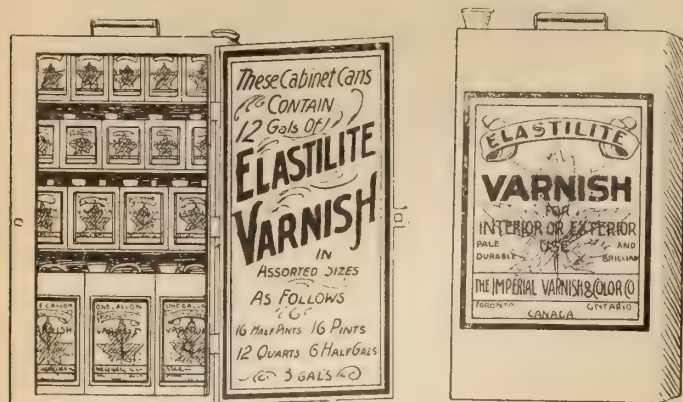 These Cabinet Cans
CONTAIN
12 Gals Of
ELASTILITE
VARNISH
IN
ASSORTED SIZES
AS FOLLOWS
16 HALF PINTS 16 PINTS
12 QUARTS 6 HALF GALS
3 GALS
ONE GALLON
VARNISH
ELASTILITE
VARNISH
FOR
INTERIOR OR EXTERIOR
PALE USE AND
DURABLE BRILLIANT
THE IMPERIAL VARNISH & COLOR CO
TORONTO ONTARIO
CANADA